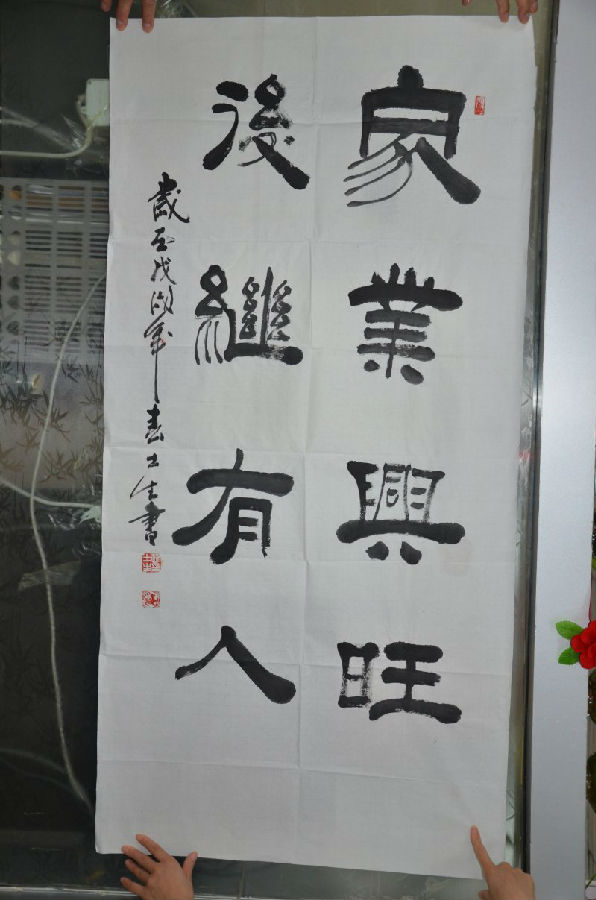 家業興旺
後繼有人
歲在戊戌年春士生書